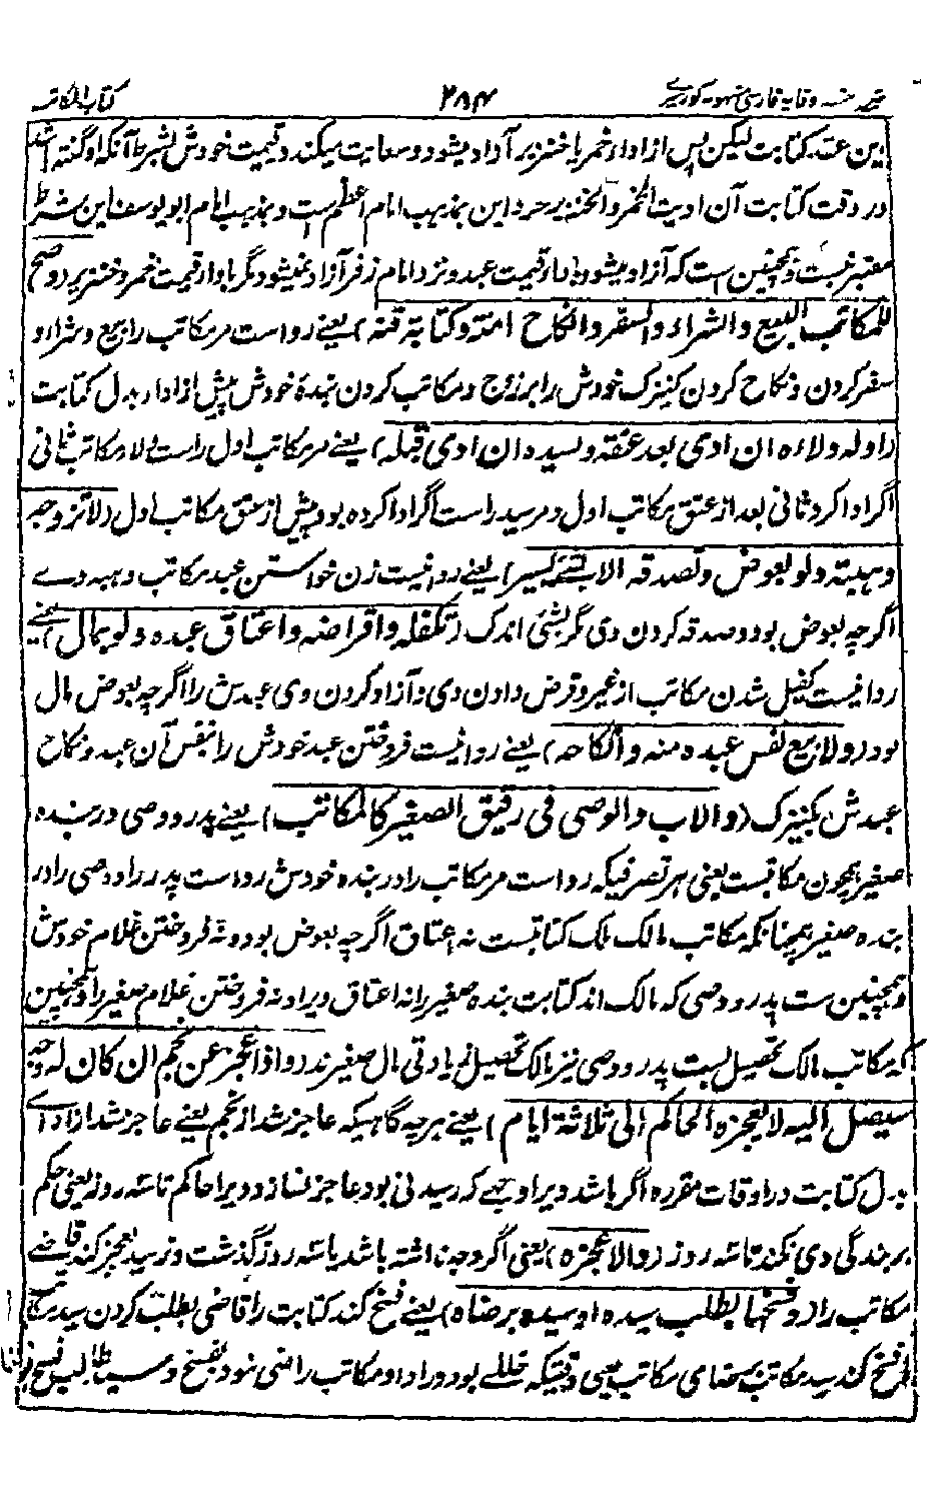 ۲۸۴ کتاب المکاتب
این عقد کتابت لیکن پس از ادا خمر یا خنزیر آزاد میشود و سعایت میکند در قیمت خودش بشرط آنکه او گفته باشد
در وقت کتابت آن ادیت الخمر والخنزیر حر و این بمذهب امام اعظم است و بمذهب امام ابو یوسف این شرط
معتبر نیست و همچنین ست که آزاد میشود بادا قیمت عبد و نزد امام زفر آزاد نمیشود مگر بادا قیمت خمر و خنزیر (وصح
للمکاتب البیع والشراء والسفر وانکاح امته وکتابة قنه) یعنے روا ست مر مکاتب را بیع و شرا و
سفر کردن و نکاح کردن کنیزک خودش را بر زوج و مکاتب کردن بندهٔ خودش پیش از ادا بدل کتابت
را (وله ولاءه ان ادی بعد عتقه ولسیده ان ادی قبله) یعنے مر مکاتب اول راست ولاء مکاتب ثانی
اگر ادا کرد ثانی بعد از عتق مکاتب اول و مر سید راست اگر ادا کرده بود پیش از عتق مکاتب اول (لا تزوجه
وهبته ولو بعوض وتصدقه الا بشئ یسیر) یعنے روا نیست زن خواستن عبد مکاتب و هبه وے
اگر چه بعوض بود و صدقه کردن وی مگر بشئ اندک (وتکفله واقراضه واعتاق عبده ولو بمال) یعنے
روا نیست کفیل شدن مکاتب از غیر و قرض دادن وی و آزاد کردن وی عبدش را اگر چه بعوض مال
بود (ولا بیع نفس عبده منه وانکاحه) یعنے روا نیست فروختن عبد خودش را بنفس آن عبد و نکاح
عبدش بکنیزک (والاب والوصی فی رقیق الصغیر کالمکاتب) یعنے پدر و وصی در بنده
صغیر همچون مکاتبست یعنی هر تصرفیکه روا ست مر مکاتب را در بنده خودش روا ست پدر را و وصی را در
بنده صغیر چنانکه مکاتب مالک کتابتست نه اعتاق اگر چه بعوض بود و نه فروختن غلام خودش
و همچنین ست پدر و وصی که مالک اند کتابت بنده صغیر را نه اعتاق ویرا و نه فروختن غلام صغیر را و همچنین
که مکاتب مالک تحصیل ست پدر و وصی نیز مالک تحصیل زیادتی مال صغیرند (واذا عجز عن نجم ان کان له وجه
سیصل الیه لا یعجزه الحاکم الی ثلاثة ایام) یعنے هر چه گاهیکه عاجز شد از نجم یعنے عاجز شد از ادائے
بدل کتابت در اوقات مقرره اگر باشد ویرا وجهے که رسیدنی بود عاجز نسازد ویرا حاکم تا سه روز یعنی حکم
بر بندگی وی نکند تا سه روز (والا عجزه) یعنی اگر وجه نداشته باشد یا سه روز گذشت و نرسید عجز کند قاضے
مکاتب را (وفسخها بطلب سیده او سیده برضاه) یعنے فسخ کند کتابت را قاضی بطلب کردن سید مکاتب
یا فسخ کند سید مکاتب برضامندی مکاتب یعنی وقتیکه خللے بود در ادا و مکاتب راضی نبود بفسخ و سید طالب فسخ بود